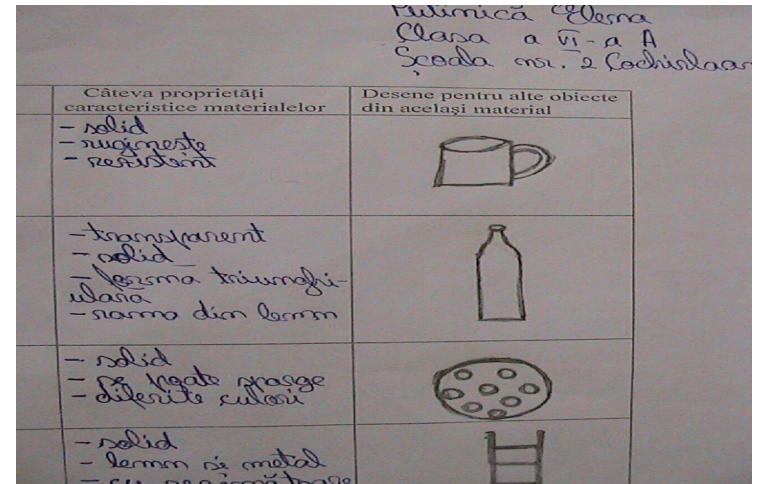 Elena
Clasa a VI-a A
Școala nr. 2
Câteva proprietăți
caracteristice materialelor
Desene pentru alte obiecte
din același material
- solid
- ruginește
- rezistent
- transparent
- solid
- forma triunghi-
ulara
- rama din lemn
- solid
- se poate sparge
- diferite culori
- solid
- lemn și metal
- cu